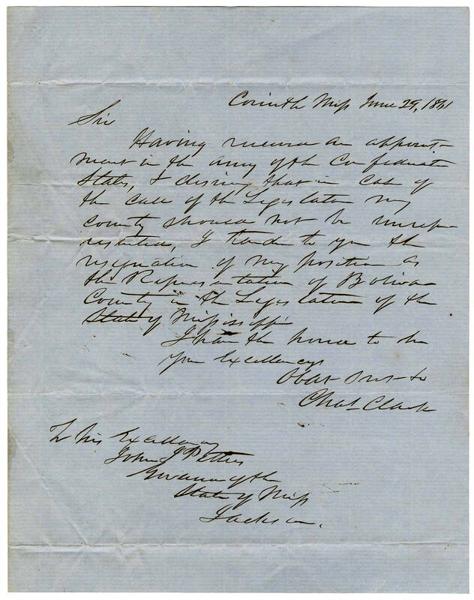 Corinth Miss June 29, 1861
Sir
Having received an appoint-
ment in the army of the Confederate
States, & desiring that in case of
the case of the Legislature my
county should not be unrep-
resented, I tender to you the
resignation of my position as
the Representative of Bolivar
County in the Legislature of the
State of Mississippi
I have the honor to be
your Excellencys
Obdt Svt
Chas Clark
To his Excellency
John J Pettus
Governor of the
State of Miss
Jackson.